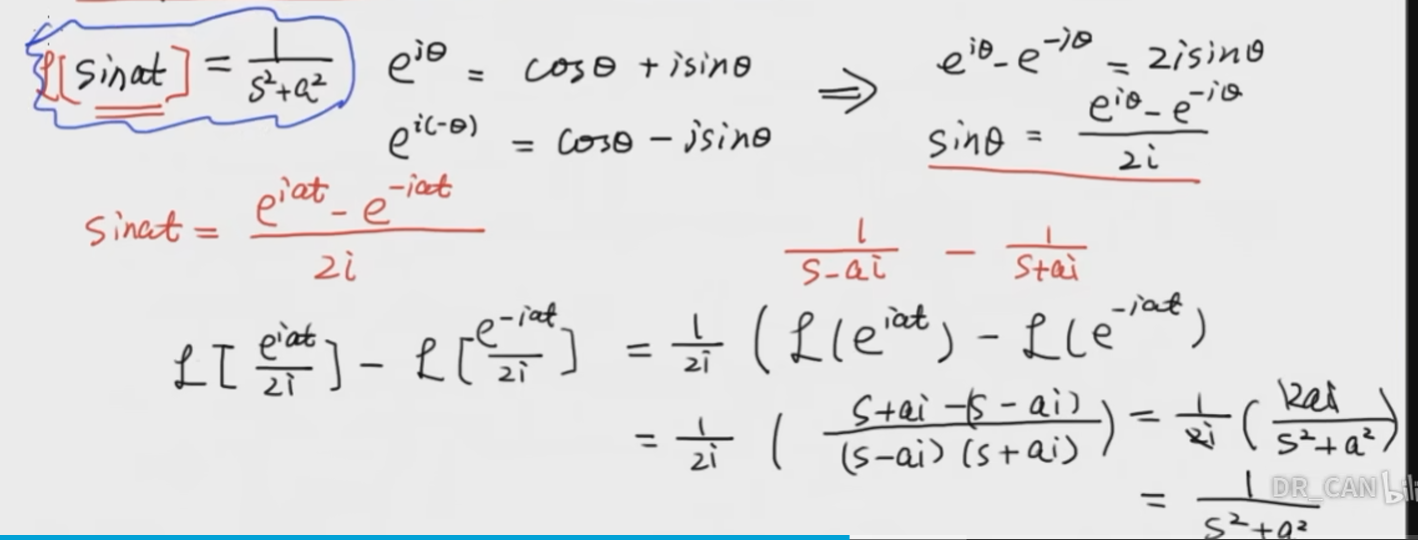 ℒ[sinat] = 1/(s²+a²)
e^{iθ} = cosθ + isinθ ⇒ e^{iθ} - e^{-iθ} = 2isinθ
e^{i(-θ)} = cosθ - isinθ
sinθ = (e^{iθ} - e^{-iθ})/2i
sinat = (e^{iat} - e^{-iat})/2i
1/(s-ai) - 1/(s+ai)
ℒ[e^{iat}/2i] - ℒ[e^{-iat}/2i] = 1/2i (ℒ(e^{iat}) - ℒ(e^{-iat})
= 1/2i ((s+ai-(s-ai))/((s-ai)(s+ai))) = 1/2i (2ai/(s²+a²))
= 1/(s²+a²)
DR_CAN bili